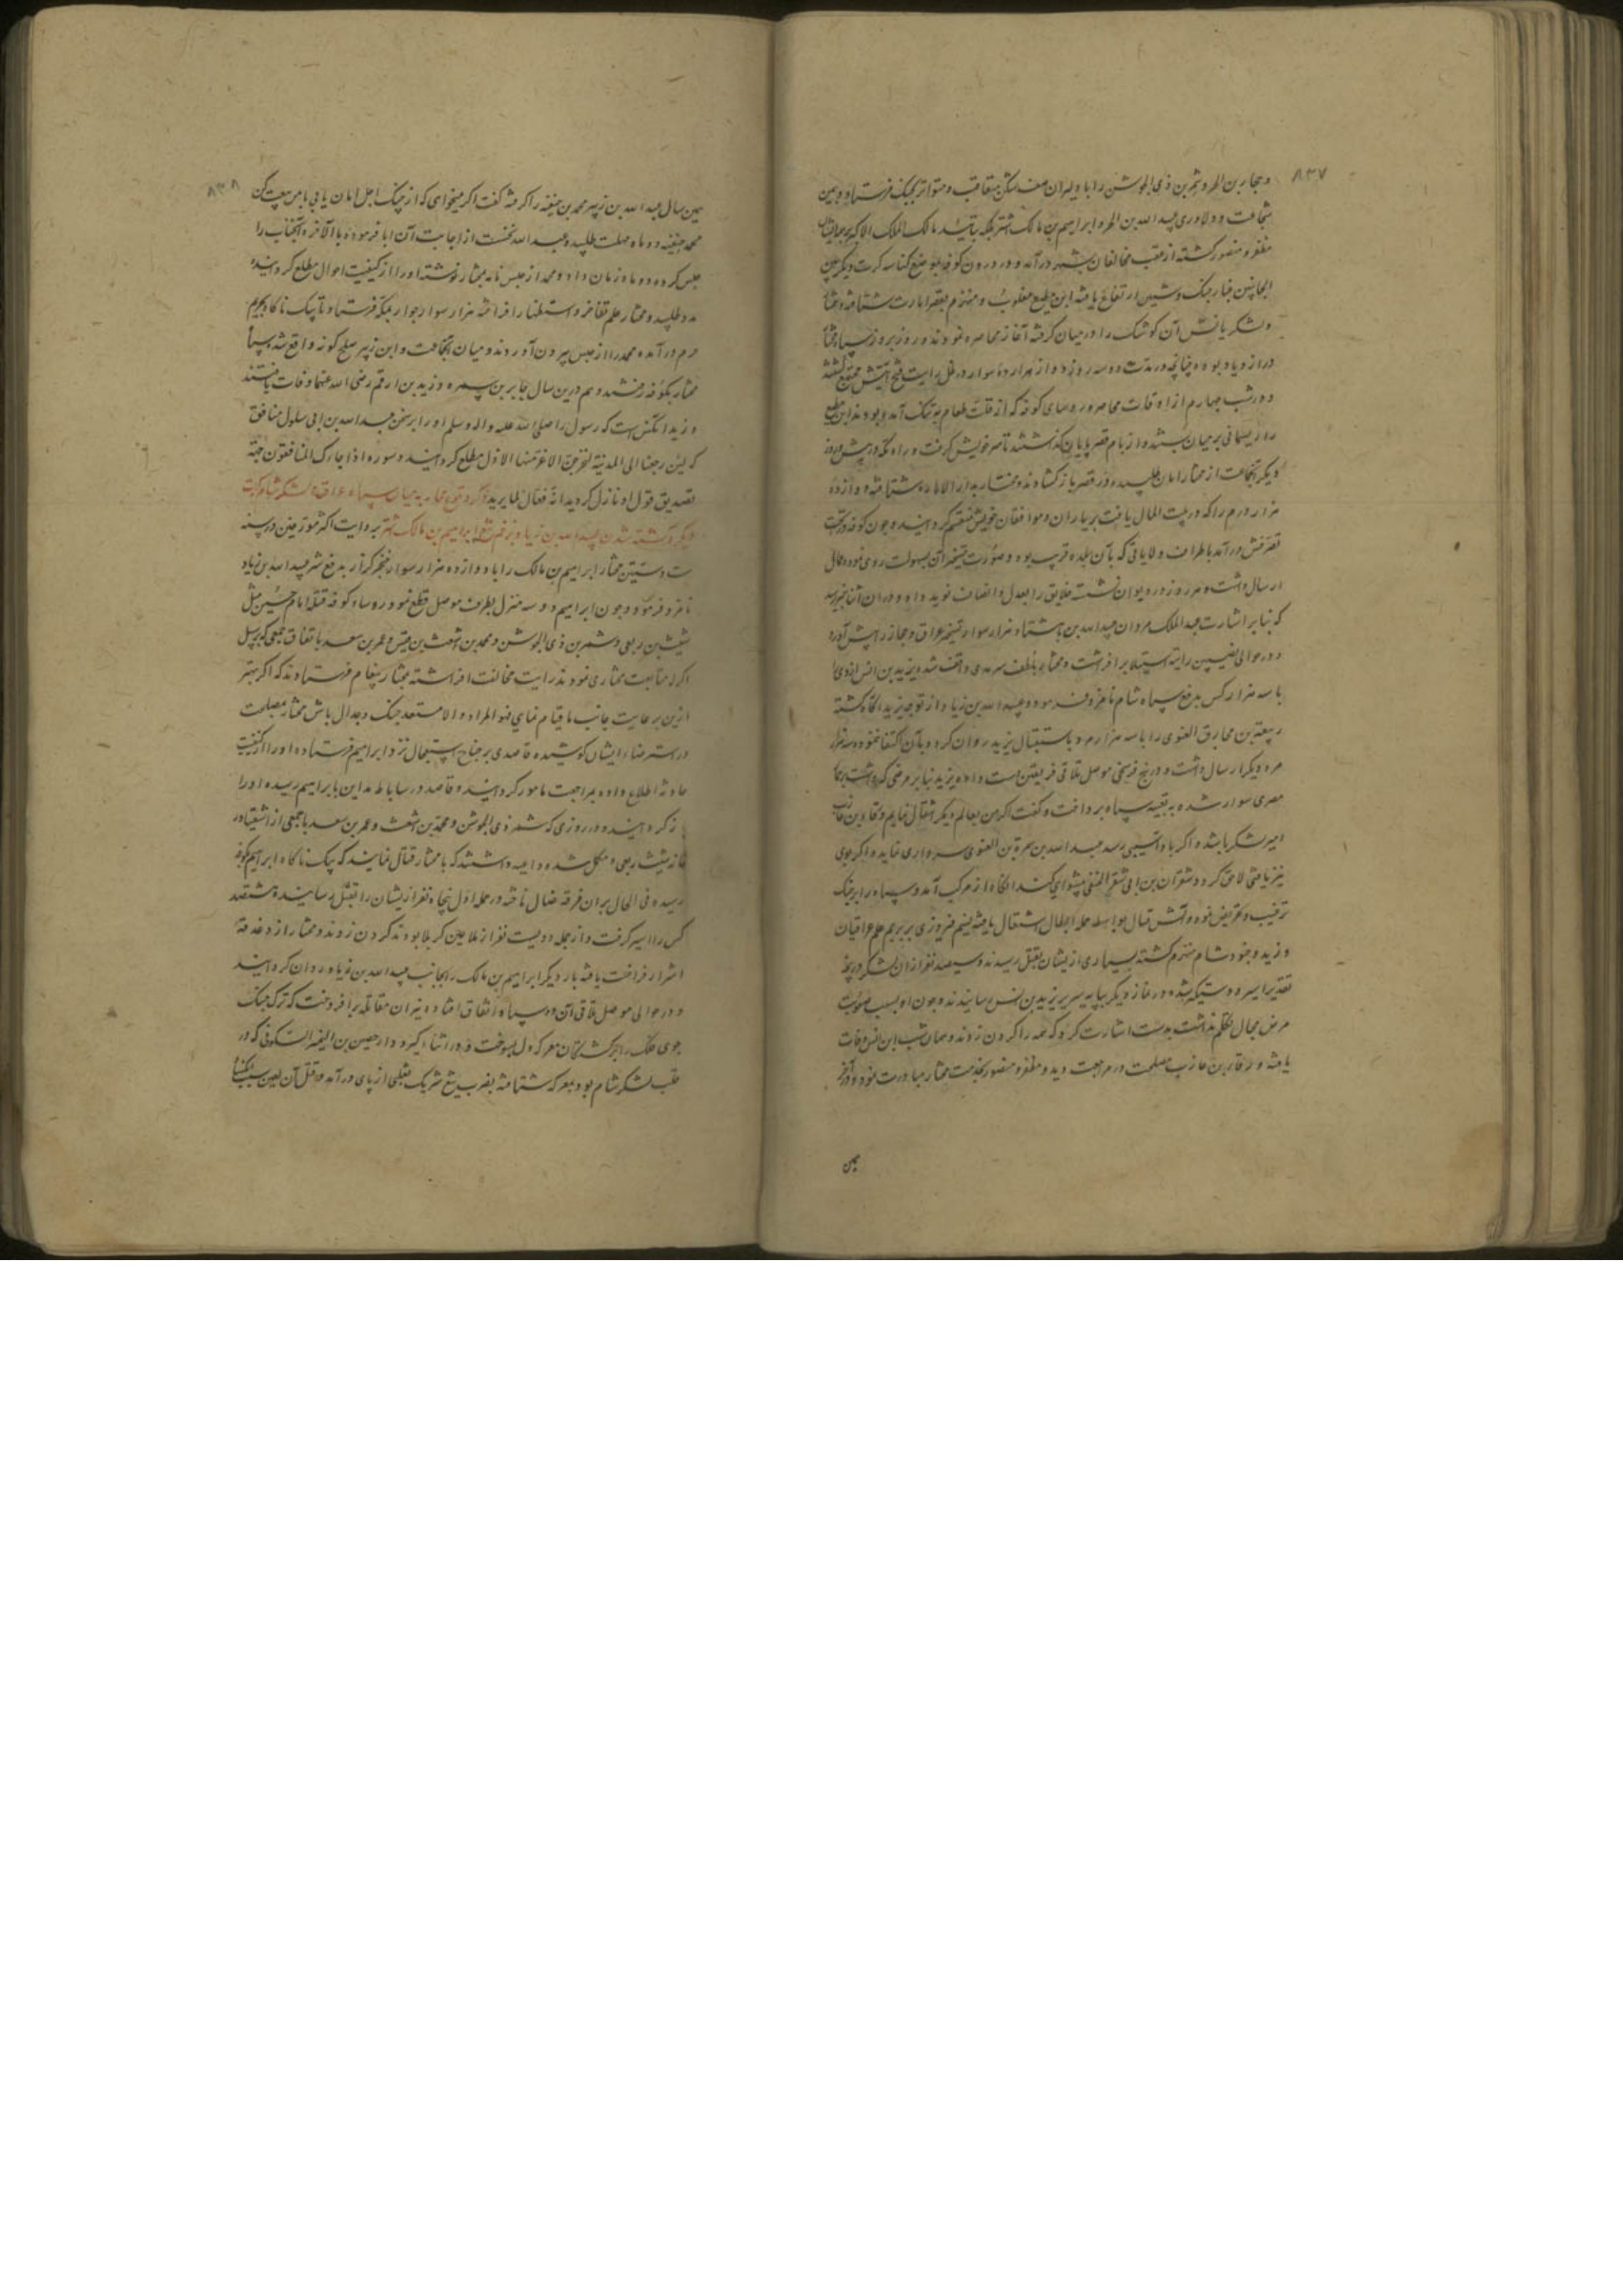 ۸۳۷
و حجار بن الحر و شمر بن ذی الجوشن را با دلیران صف شکن متعاقب و متواتر بجنگ فرستاد و بیمن
شجاعت و دلاوری عبد الله بن الحر و ابراهیم بن مالک اشتر بلکه بتایید مالک الملک الاکبر
مظفر و منصور کشته از عقب مخالفان بشهر درآمد و در درون کوفه بموضع کناسه کرت دیکر بین
الجانبین غبار جنک و شین ارتفاع یافته ابن مطیع مغلوب و منهزم بقصر امارت شتافته و مختار
و لشکریانش آن کوشک را در میان گرفته آغاز محاصره نمودند و روز بروز سپاه مختار
در ازدیاد بوده چنانچه در مدت دو سه روز دوازده هزار سوار در ظل رایت فتح آیتش مجتمع کشتند
و در شب چهارم از اوقات محاصره رؤسای کوفه که از قلت طعام به تنک آمده بودند ابن مطیع
را ریسمانی بر میان بستند و از بام قصر پایان گذاشتند تا سر خویش گرفت و راه مکه در پیش و روز
دیکر آنجماعت از مختار امان طلبیده در قصر باز گشادند و مختار بدار الاماره شتافته دوازده
هزار درم را که در بیت المال یافت بر یاران و موافقان خویش منقسم گردانید و چون کوفه در تحت
تصرفش درآمد باطراف ولایاتی که بآن بلده قریب بود و صورت تسخیر آن بسهولت روی نمود عمال
ارسال داشت و هر روز در دیوان نشسته خلایق را بعدل و انصاف نوید داد و در آن اثنا خبر رسید
که بنا بر اشارت عبد الملک مروان عبید الله بن با هشتاد هزار سوار تسخیر عراق و حجاز را پیش آورد
و در حوالی نصیبین رایت استیلا برافراشت و مختار بلطف سرمدی واقف شد یزید بن انس ازدی را
با سه هزار کس بدفع سپاه شام نامزد فرمود و عبید الله بن زیاد از توجه یزید آگاه کشته
ربیعة بن مخارق الغنوی را با سه هزار مرد باستقبال یزید روان کرد و بآن اکتفا ننموده سه هزار
مرد دیکر ارسال داشت و در پنج فرسخی موصل تلاقی فریقین دست داده یزید بنا بر مرضی که داشت بر حمار
مصری سوار شده به تعبیه سپاه پرداخت و گفت اگر من بعالم دیکر انتقال نمایم ورقاء بن عازب
امیر لشکر باشد و اگر باو آسیبی رسد عبد الله بن ضمرة بن الغنوی سرداری نماید و اگر بوی
نیز بافتی لاحق گردد شعر بن ابی شعر الحنفی پیشوایی کند آنکاه از مرکب آمد و سپاه را بر جنک
ترغیب و تحریض نموده و آتش قتال بواسطه حمله ابطال اشتعال یافته نسیم فیروزی بر پرچم علم عراقیان
وزید و جنود شام منهزم کشته بسیاری از ایشان بقتل رسیدند و سیصد نفر از ان لشکر در پنجه
تقدیر اسیر و دستگیر شده در نماز دیکر بپایه سریر یزید بن انس رسانیدند و چون او بسبب صعوبت
مرض مجال تکلم نداشت بدست اشارت کرد که همه را گردن زدند و همان شب ابن انس وفات
یافته ورقاء بن عازب مصلحت در مراجعت دید و مظفر و منصور بخدمت مختار مبادرت نمود و در آخر
همین
۸۳۸
همین سال عبد الله بن زبیر محمد بن حنفیه را گرفته گفت اگر میخواهی که از چنک اجل امان یابی با من بیعت کن
محمد حنفیه دو ماه مهلت طلبید و عبد الله نخست از اجابت آن ابا فرموده بالاخره آنجناب را
حبس کرده دو ماه زمان داد و محمد از حبس نامه بمختار نوشته او را از کیفیت احوال مطلع گردانیده
مدد طلبید و مختار علم تفاخر و استظهار افراخته هزار سوار جرار بمکه فرستاد تا بیک ناگاه بحرم
حرم درآمده محمد را از حبس بیرون آوردند و میان آنجماعت و ابن زبیر صلح گونه واقع شد سپاه
مختار بکوفه رفتند و هم درین سال جابر بن سمره و زید بن ارقم رضی الله عنهما وفات یافتند
و زید آنکس است که رسول را صلی الله علیه واله وسلم او را بر سخن عبد الله بن ابی سلول منافق
که لئن رجعنا الی المدینة لیخرجن الاعز منها الاذل مطلع گردانید و سوره اذا جاءک المنافقون جهة
تصدیق قول او نازل گردید انه فعال لما یرید ذکر وقوع محاربه میان سپاه عراق و لشکر شام کرت
دیکر و کشته شدن عبید الله بن زیاد بزخم تیغ ابراهیم بن مالک اشتر بروایت اکثر مورخین در سنه
ست و ستین مختار ابراهیم بن مالک را با دوازده هزار سوار خنجر گذار بدفع شر عبید الله بن زیاد
نامزد فرمود و چون ابراهیم دو سه منزل بطرف موصل قطع نمود رؤساء کوفه قتله امام حسین مثل
شبث بن ربعی و شمر بن ذی الجوشن و محمد بن اشعث بن قیس و عمر بن سعد باتفاق جمعی که بر سبیل
اکراه متابعت مختار می نمودند رایت مخالفت افراشته بمختار پیغام فرستادند که اگر بهتر
ازین بر رعایت جانب ما قیام نمایی فهو المراد و الا مستعد جنک و جدال باش مختار مصلحت
در استرضاء ایشان کوشیده قاصدی بر جناح استعجال نزد ابراهیم فرستاده او را از کیفیت
حادثه اطلاع داده بمراجعت مامور گردانید و قاصد در ساباط مداین بابراهیم رسیده او را
باز گردانید و در روزی که شمر ذی الجوشن و محمد بن اشعث و عمر بن سعد با جمعی از اشقیا در
خانه شبث ربعی مکمل شده داعیه داشتند که با مختار قتال نمایند که بیک ناگاه ابراهیم بکوفه
رسیده فی الحال بران فرقه ضال تاخته در حمله اول پنجاه نفر از ایشان را بقتل رسانیده هشتصد
کس را اسیر گرفت و از جمله دویست نفر از ملاعین کربلا بودند گردن زدند و مختار از دغدغه
اشرار فراغت یافته بار دیکر ابراهیم بن مالک را بجانب عبید الله بن زیاد روان گردانید
و در حوالی موصل تلاقی آن دو سپاه اتفاق افتاده نیران مقاتله برافروخت که ترک جنک
جوی فلک را بر کشتکان معرکه دل بسوخت و در اثناء گیر و دار حصین بن النمیر السکونی که در
عقب لشکر شام بود بمعرکه شتافته بضرب تیغ شریک تغلبی از پای درآمد و قتل آن لعین سبب